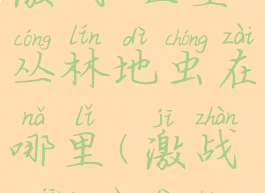 cóng lín dì chóng zài
丛林地虫在
nǎ lǐ jī zhàn
哪里(激战